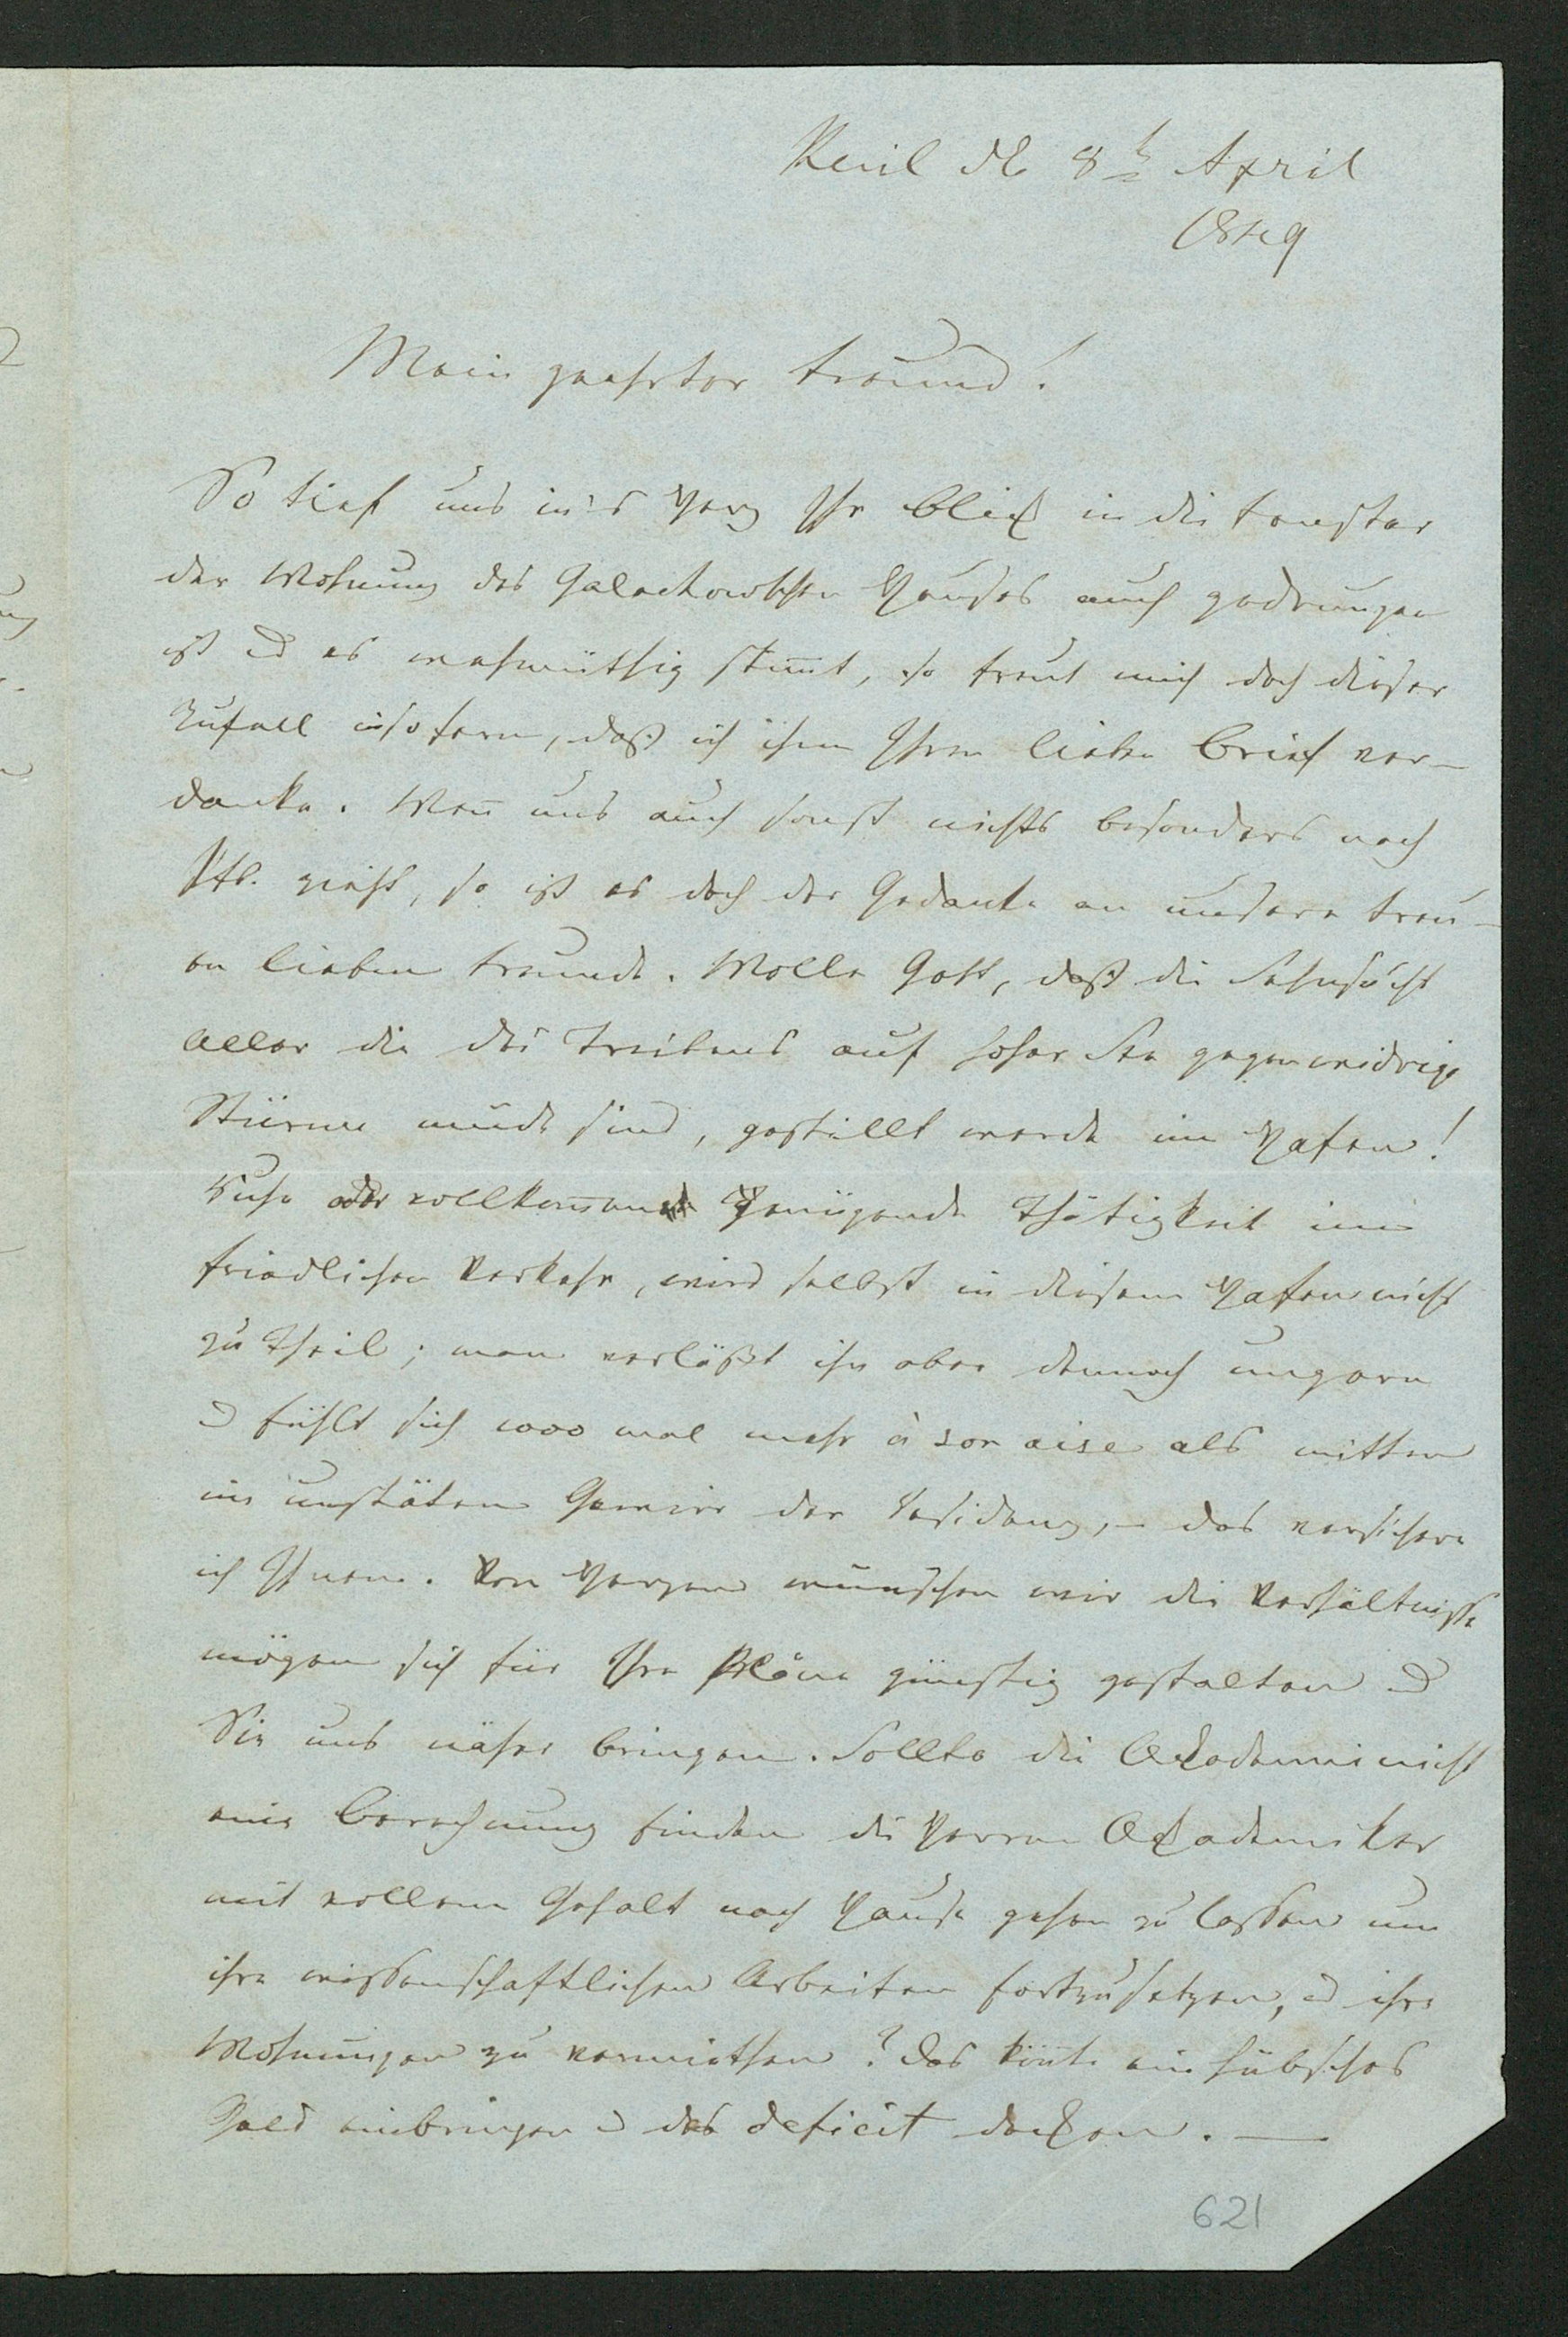 Reuil d 8t April
1849
Mein geehrter Freund!
So tief uns in's Herz Ihr Blick in die Fenster
der Wohnung des Galachowschen Hauses auch gedrungen
ist u es wehmüthig stimt, so freut mich doch dieser
Zufall insofern, daß ich ihm Ihren lieben Brief ver-
danke. Wen uns auch sonst nichts besonders nach
Ptb. zieht, so ist es doch der Gedanke an unsere treu-
en lieben Freunde. Wolle Gott, daß die Sehnsucht
aller die des Treibens auf hoher See gegen widrige
Stürme müde sind, gestillt werde im Hafen!
Ruhe oder vollkommen genügende Thätigkeit im
friedlichen Verkehr, wird selbst in diesem Hafen nicht
zu Theil; man verläßt ihn aber dennoch ungern
u fühlt sich 1000 mal mehr à son aise als mitten
im unstäten Gewirr der Residenz, – das versichere
ich Ihnen. Von Herzen wünschen wir die Verhältnisse
mögen sich für Ihre Pläne günstig gestalten u
Sie uns näher bringen. Sollte die Academie nicht
eine Berechnung finden die Herren Academiker
mit vollem Gehalt nach Hause gehen zu lassen um
ihre wissenschaftlichen Arbeiten fortzusetzen, u ihre
Wohnungen zu vermiethen? Das könte ein hübsches
Geld einbringen u das deficit decken. —
621